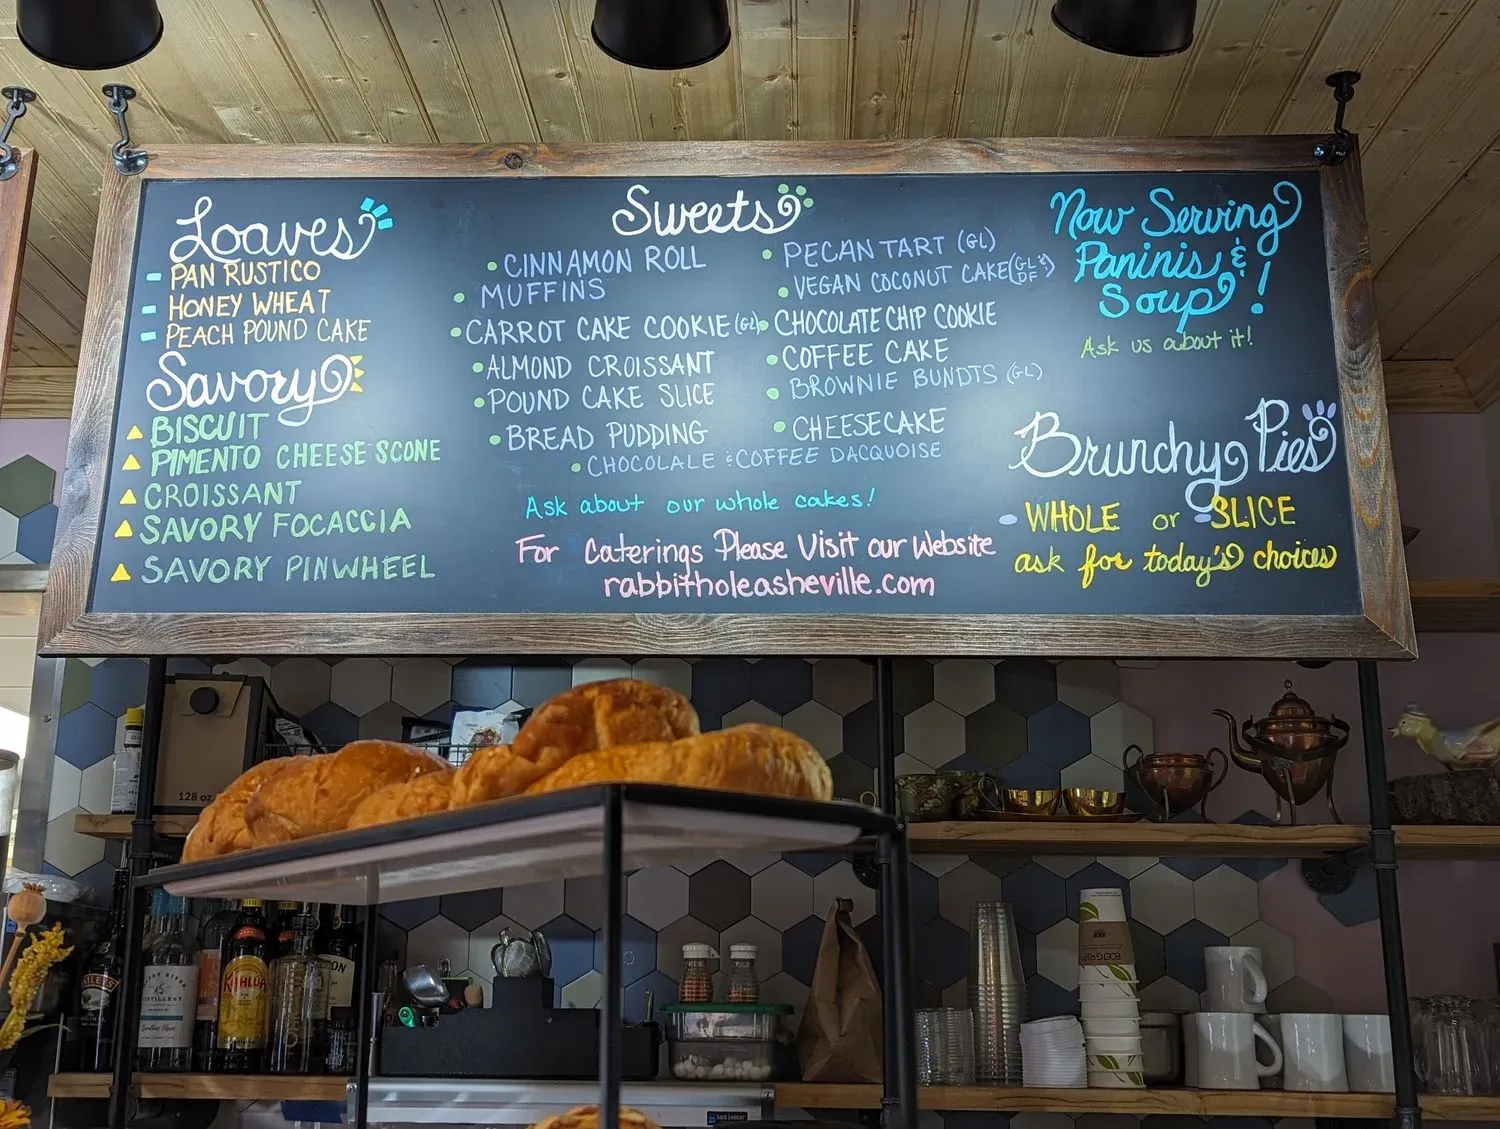 Loaves
PAN RUSTICO
HONEY WHEAT
PEACH POUND CAKE
Savory
BISCUIT
PIMENTO CHEESE SCONE
CROISSANT
SAVORY FOCACCIA
SAVORY PINWHEEL
Sweets
CINNAMON ROLL
MUFFINS
CARROT CAKE COOKIE (GL)
ALMOND CROISSANT
POUND CAKE SLICE
BREAD PUDDING
PECAN TART (GL)
VEGAN COCONUT CAKE (GL & DF)
CHOCOLATE CHIP COOKIE
COFFEE CAKE
BROWNIE BUNDTS (GL)
CHEESECAKE
CHOCOLALE & COFFEE DACQUOISE
Ask about our whole cakes!
For Caterings Please Visit our Website
rabbitholeasheville.com
Now Serving
Paninis &
Soup!
Ask us about it!
Brunchy Pies
WHOLE or SLICE
ask for today's choices
128 oz
KAHLUA
DISTILLERY